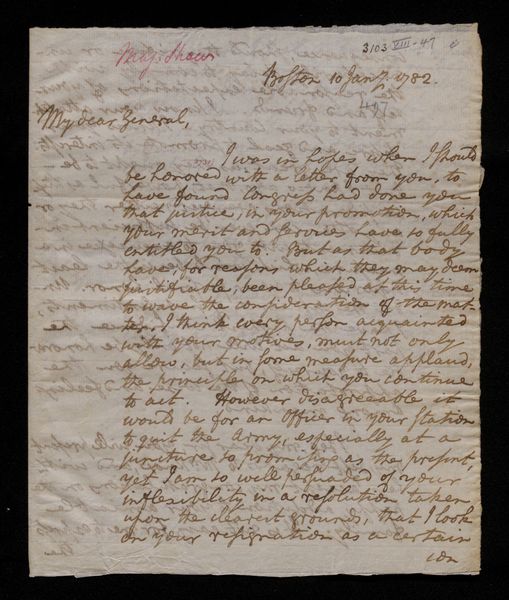 Maj. Shaw
3103 VIII-47
Boston 10 Jany. 1782.
407
My dear General,
I was in hopes when I should
be honored with a letter from you, to
have found Congress had done you
that justice, in your promotion, which
your merit and services have so fully
entitled you to. But as that body
have, for reasons which they may deem
justifiable, been pleased at this time
to wive the consideration of the mat-
ter, I think every person acquainted
with your motives, must not only
allow, but in some measure applaud,
the principle on which you continue
to act. However disagreeable it
would be for an Officer in your station
to quit the Army, especially at a
juncture so promising as the present,
yet I am so well persuaded of your
inflexibility in a resolution taken
upon the clearest grounds, that I look
on your resignation as a certain
con